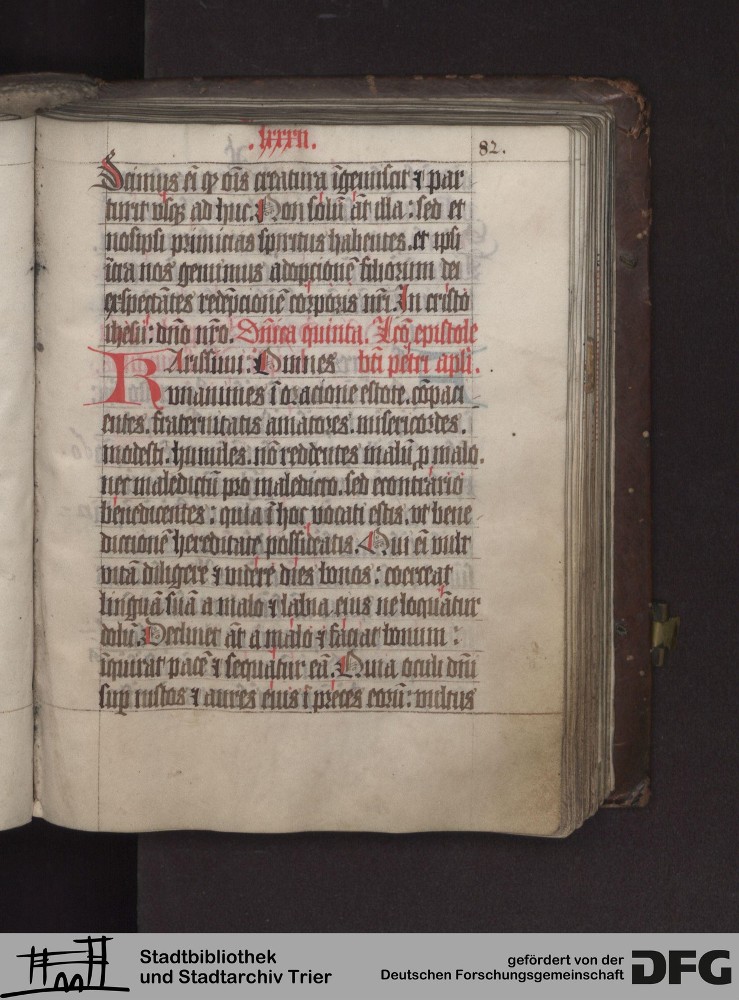 .lxxxii.
82.
Scimus eī qꝫ oīs creatura īgemiscit ⁊ par
turit vsqꝫ ad huc. Non solū āt illa: sed et
nosipsi primicias spiritus habentes. et ipsi
ītra nos gemimus adopcionē filiorum dei
exspectātes redēpcionē corporis nr̄i. In cristo
ihesu: dn̄o nr̄o. Dn̄ica quinta. Lcō epistole
Karissimi: Omnes bt̄i petri apl̄i.
vnanimes ī oracione estote. cōpaci
entes. fraternitatis amatores. misericordes.
modesti. humiles. nō reddentes malū ꝓ malo.
nec maledictū pro maledicto. sed econtrario
benedicentes: quia ī hoc vocati estis. vt bene
dictionē hereditate possideatis. Qui eī vult
vitā diligere ⁊ videre dies bonos: coerceat
linguā suā a malo ⁊ labia eius ne loquātur
dolū. Declinet āt a malo ⁊ faciat bonum:
īquirat pacē ⁊ sequatur eā. Quia oculi dn̄i
suꝑ iustos ⁊ aures eius ī preces eorū: vultus
Stadtbibliothek
und Stadtarchiv Trier
gefördert von der
Deutschen Forschungsgemeinschaft
DFG